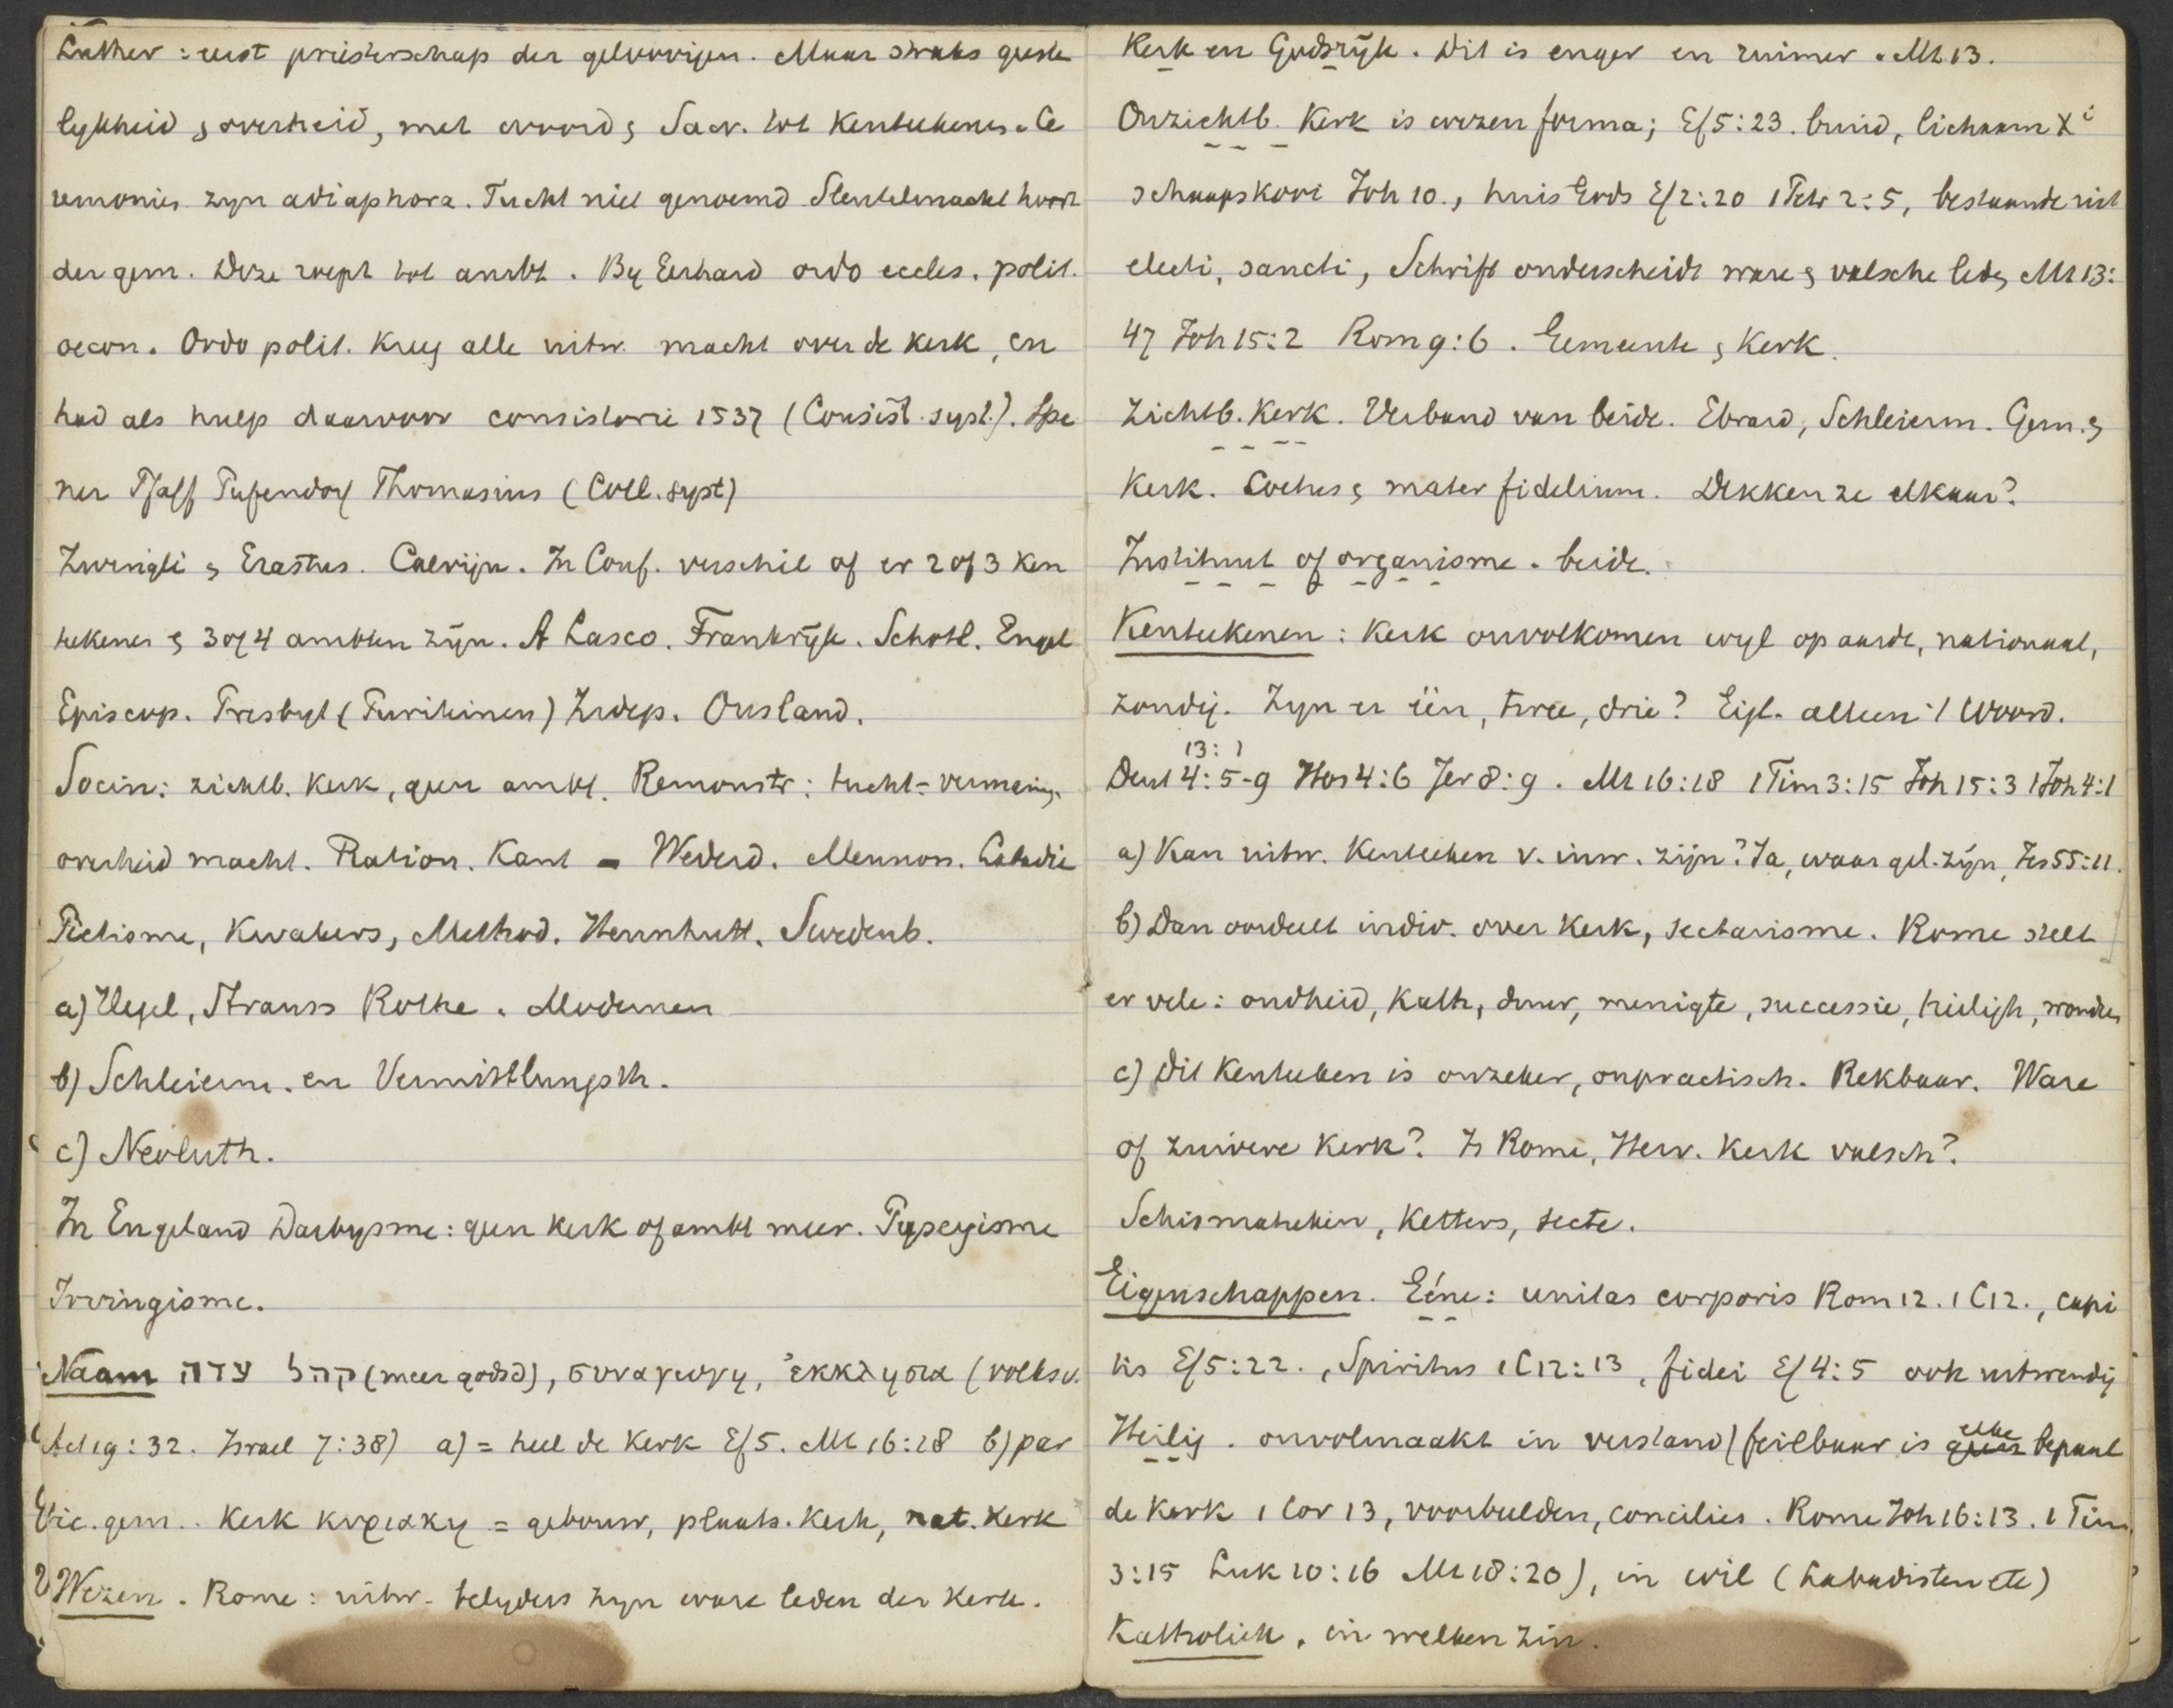 Luther: eerst priesterschap der geloovigen. Maar straks geeste
lykheid & overheid, met woord & Sacr. tot Kenteekenen. Ce
remonies zyn adiaphora. Tucht niet genoemd Sleutelmacht hoort
der gem. Deze roept tot ambt. By Gerhard ordo eccles. polit.
oecon. Ordo polit. Kreeg alle uitw. macht over de kerk, en
had als hulp daarvoor consistorie 1537 (Consist. syst.). Spe
ner Pfaff Pufendorf Thomasius (Coll. syst)
Zwingli & Erastus. Calvijn. In Conf. verschil of er 2 of 3 Ken
tekenen & 3 of 4 ambten zÿn. A Lasco. Frankrÿk. Schotl. Engel
Episcop. Presbyt (Puriteinen) Indep. Ousland.
Socin: zichtb. Kerk, geen ambt. Remonstr: tucht = vermaning.
overheid macht. Ration. Kant - Wederd. Mennon. Labadie
Piëtisme, Kwakers, Method. Hernhutt. Swedenb.
a) Hegel, Strauss Rothe. Modernen
b) Schleierm. en Vermittlungsth.
c) Neoluth.
In Engeland Darbysme: geen kerk of ambt meer. Puseyisme
Irvingisme.
Naam עדה קהל (meer godsd), συναγωγη, ἐκκλησια (volksv.
Act 19:32. Israel 7:38) a) = heel de Kerk Ef 5. Mt 16:18 b) par
tic. gem.. Kerk κυριακη = gebouw, plaats. Kerk, nat. Kerk
Wezen. Rome: uitw. belyders zyn ware leden der Kerk.
Kerk en Godsrÿk. Dit is enger en ruimer. Mt 13.
Onzichtb. Kerk is wezen forma; Ef 5:23. bruid, lichaam Xⁱ
schaapskooi Joh 10., huis Gods Ef 2:20 1 Petr 2:5, bestaande uit
electi, sancti, Schrift onderscheidt ware & valsche leden Mt 13:
47 Joh 15:2 Rom 9:6. Gemeente & Kerk.
Zichtb. Kerk. Verband van beide. Ebrard, Schleierm. Gem. &
Kerk. Coetus & mater fidelium. Dekken ze elkaar?
Instituut of organisme. beide.
Kenteekenen: Kerk onvolkomen wyl op aarde, nationaal,
zondig. Zyn er één, twee, drie? Eigl. alleen 't Woord.
13: 1
Deut 4:5-9 Hos 4:6 Jer 8:9. Mt 16:18 1 Tim 3:15 Joh 15:3 1 Joh 4:1
a) Kan uitw. Kenteeken v. inw. zijn? Ja, waar gel. zÿn, Jes 55:11.
b) Dan oordeelt indiv. over Kerk, sectarisme. Rome stelt
er vele: oudheid, Kath, duur, menigte, successie, heiligh, wonder
c) Dit Kenteeken is onzeker, onpractisch. Rekbaar. Ware
of zuivere Kerk? Is Rome, Herv. Kerk valsch?
Schismatieken, Ketters, secte.
Eigenschappen. Eéne: unitas corporis Rom 12. 1 C 12., capi
tis Ef 5:22., Spiritus 1 C 12:13, fidei Ef 4:5 ook uitwendig
Heilig. onvolmaakt in verstand (feilbaar is geen elke bepaal
de Kerk 1 Cor 13, voorbeelden, concilies. Rome Joh 16:13. 1 Tim.
3:15 Luk 10:16 Mt 18:20), in wil (Labadisten etc)
Katholiek, in welken zin.